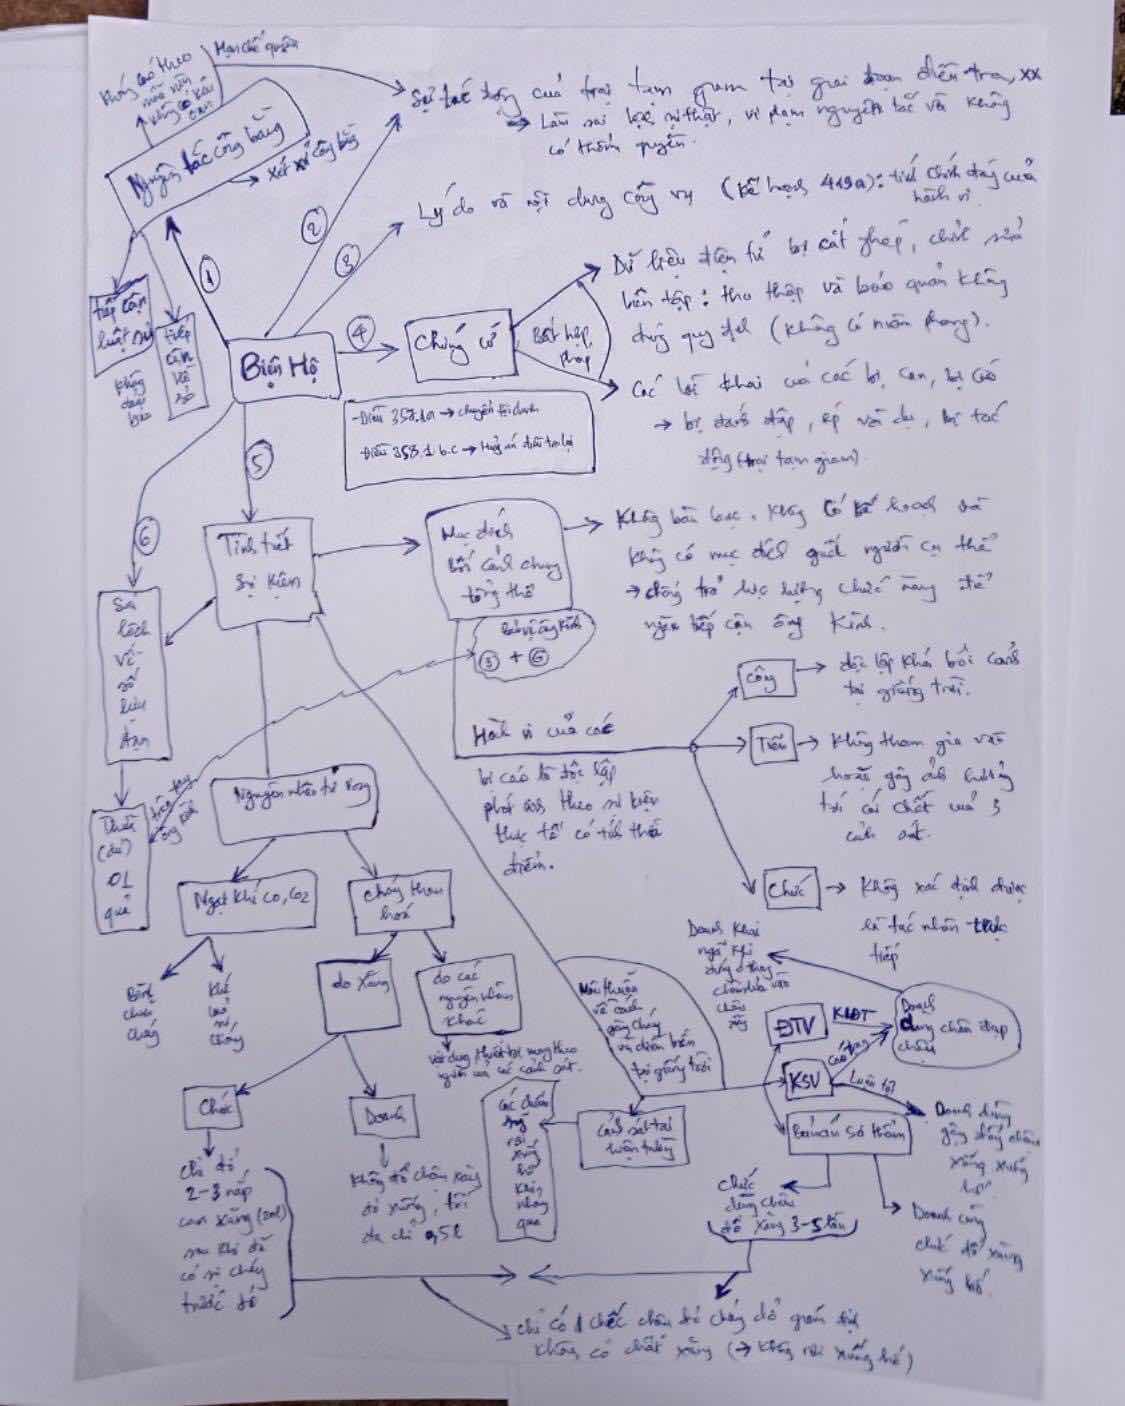 Không
Hạn chế quyền
Nguyên tắc công bằng
→ xét xử công bằng
tiếp cận
luật sư
tiếp
cận
hồ
sơ
không
đảm
bảo
①
②
③
④
⑤
⑥
Sự tác động của trại tạm giam tại giai đoạn điều tra, xx
→ Làm sai lệch sự thật, vi phạm nguyên tắc và không
có thẩm quyền.
Lý do và nội dung công vụ (Kế hoạch 419a): tính chính đáng của
hành vi
Biện Hộ
Chứng cứ
Bất hợp
pháp
Dữ liệu điện tử bị cắt ghép, chỉnh sửa
biên tập: thu thập và bảo quản không
đúng quy định (không có niêm phong).
Các lời khai của các bị can, bị cáo
→ bị đánh đập, ép và dụ, bị tác
động (trại tạm giam).
- Điều 358.1a → chuyển tội danh
- Điều 358.1 b.c → Huỷ án điều tra lại
Tình tiết
Sự kiện
Mục đích
Bối cảnh chung
tổng thể
Không bàn bạc, không có kế hoạch và
không có mục đích giết người cụ thể
→ chống trả lực lượng chức năng để
ngăn tiếp cận ông Kình.
Bảo vệ ông Kình
③ + ⑥
Sai
lệch
về
số
lựu
đạn
(
01
quả
Hành vi của các
bị cáo là độc lập
phát sinh theo sự kiện
thực tế có tính thời
điểm.
Công
→ độc lập khỏi bối cảnh
tại giếng trời.
Tiến
→ Không tham gia vào
hoặc gây ảnh hưởng
tới cái chết của 3
cảnh sát.
Chức
→ Không xác định được
là tác nhân trực
tiếp
Nguyên nhân tử vong
Ngạt khí CO, CO2
cháy than
hoá
Bình
chữa
cháy
do xăng
do các
nguyên nhân
khác
vật dụng, thiết bị mang theo
người của các cảnh sát.
Chức
Doanh
chỉ đổ
2-3 nắp
can xăng (20l)
sau khi đã
có sự cháy
trước đó
Không đổ chậu xăng
đổ xuống, tối
đa chỉ 0,5l
Mâu thuẫn
về cách
gây cháy
và diễn biến
tại giếng trời
cảnh sát tại
hiện trường
Doanh khai
ngã khi
châm lửa vào
chậu
xăng
ĐTV
KLĐT
KSV
Cáo trạng
Luận tội
Doanh
dùng chân đạp
chậu
Doanh dùng
gậy đẩy chậu
xăng xuống
hố.
Bản án sơ thẩm
Chức
dùng chậu
đổ xăng 3-5 lần
Doanh cùng
chức đổ xăng
xuống hố.
chỉ có 1 chiếc chậu đã cháy đỏ giám định
không có chất xăng (→ không rơi xuống hố)